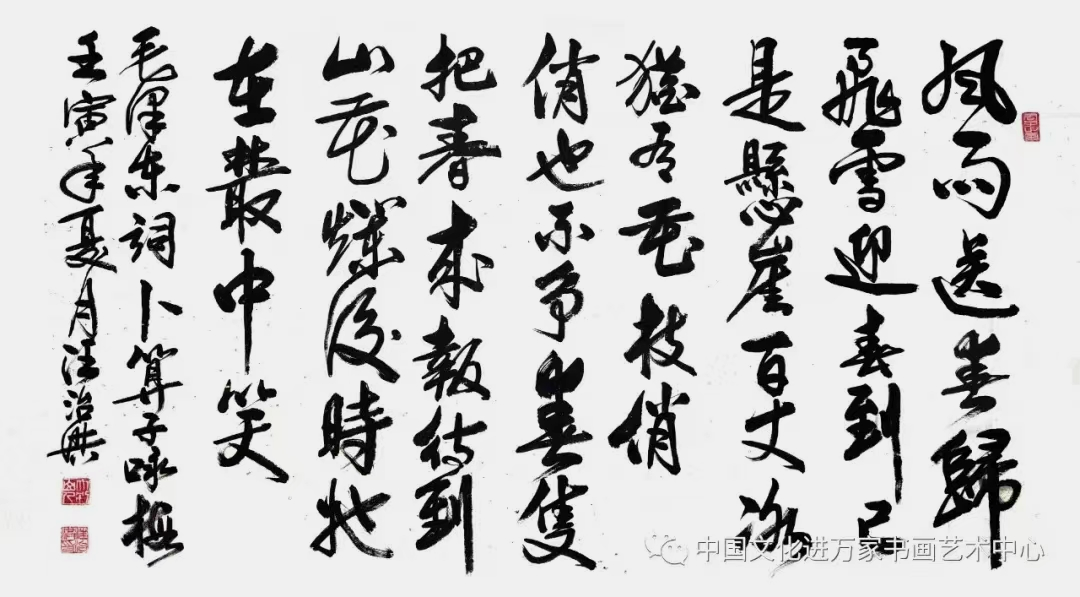 風雨送春歸
飛雪迎春到已
是懸崖百丈冰
猶有花枝俏
俏也不争春隻
把春来報待到
山花爛漫時她
在叢中笑
毛泽东词卜算子咏梅
壬寅年夏月汪治
中国文化进万家书画艺术中心